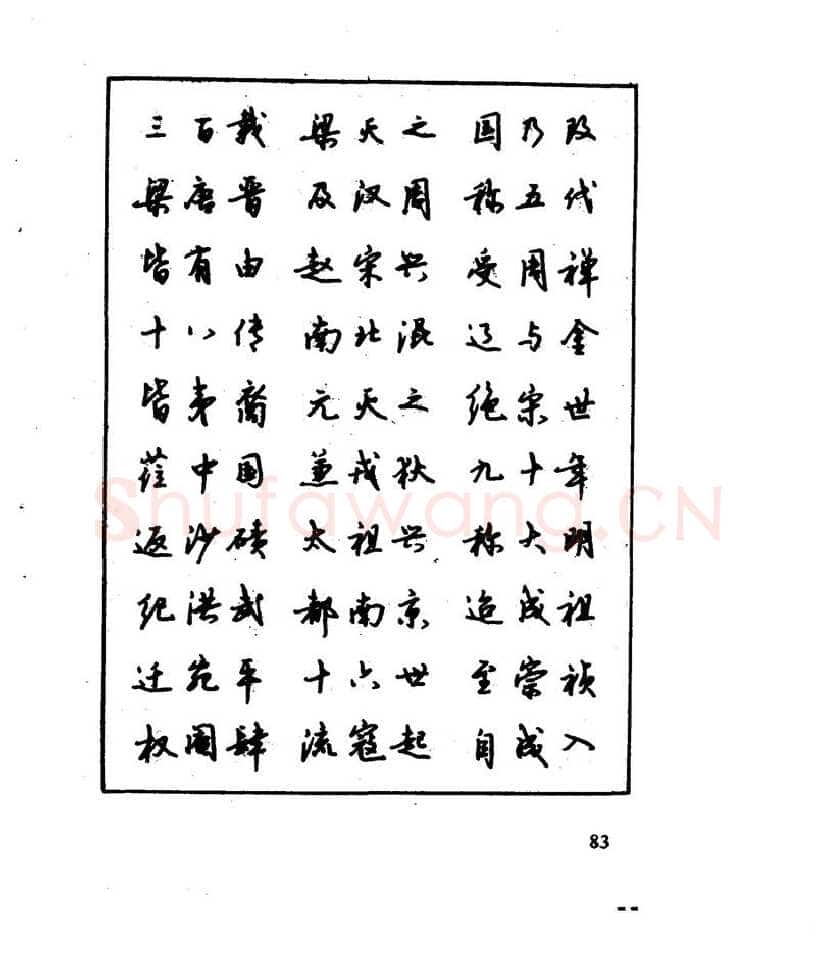 三百载 梁灭之 国乃改
梁唐晋 及汉周 称五代
皆有由 赵宋兴 受周禅
十八传 南北混 辽与金
皆夷裔 元灭之 绝宋世
莅中国 兼戎狄 九十年
返沙碛 太祖兴 称大明
纪洪武 都南京 迨成祖
迁宛平 十六世 至崇祯
权阉肆 流寇起 自成入
Shufawang.CN
83
--